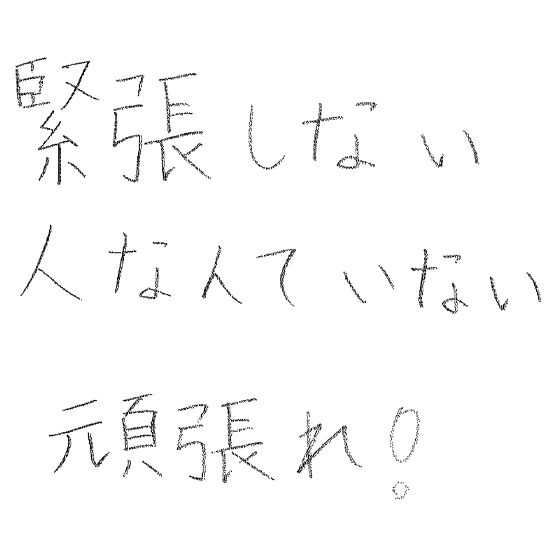 緊張しない
人なんていない
頑張れ!